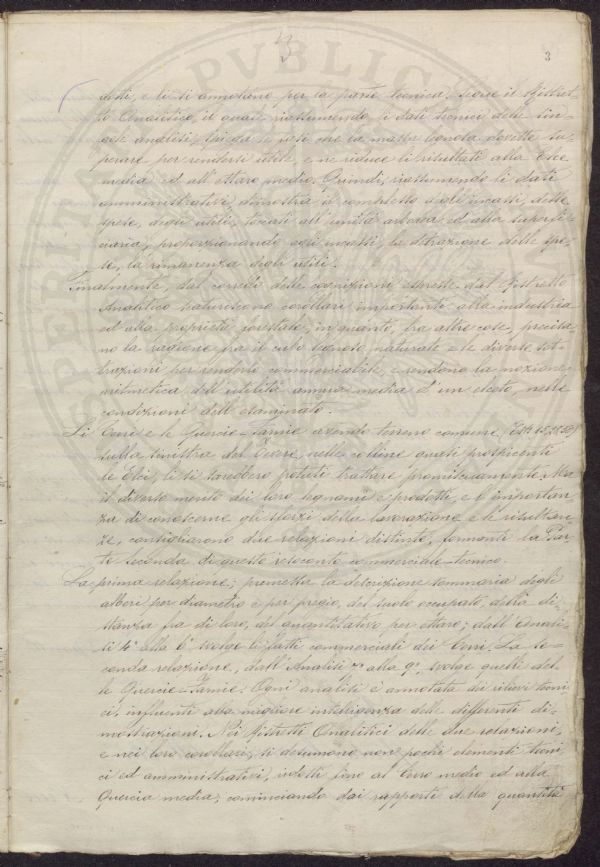 3
3
detti, e li si annotano per la parte tecnica. Segue il Ristret-
to Analitico, il quale riassumendo li dati tecnici delle sin-
gole analisi, spiega le fasi che la massa legnosa dovette su-
perare per rendersi utile, e ne riduce li risultati alla Elce
media ed all'ettaro medio. Quindi, riassumendo li dati
amministrativi, dimostra il complesso degli incassi, delle
spese, degli utili, toccati all'unità arborea ed alla superfi-
ciaria, proporzionando agli incassi, la detrazione delle spe-
se, la rimanenza degli utili.
Finalmente, dal corredo delle cognizioni estratte dal Ristretto
Analitico scaturiscono corollari importanti alla industria
ed alla proprietà forestale, in quanto, fra altre cose, precisa-
no la ragione fra il cubo legnoso naturale e le diverse sot-
trazioni per renderlo commerciabile, e rendono la nozione
aritmetica dell'utilità annua media d'un elceto, nelle
condizioni dell'esaminato.
Li Cerri e le Quercie-Farnie avendo terreno comune
sulla sinistra del Tevere, nelle colline quasi prospicenti
le Elci, li si sarebbero potuti trattare promiscuamente. Ma
il diverso merito dei loro legnami e prodotti, e l'importan-
za di conoscerne gli sforzi della lavorazione e le risultan-
ze, consigliarono due relazioni distinte, formanti la Par-
te Seconda di questo resoconto commerciale-tecnico.
La prima relazione, premessa la descrizione sommaria degli
alberi per diametro e per pregio, del suolo occupato, della di-
stanza fra di loro, del quantitativo per ettaro; dall'Analisi
4ª alla 6ª svolge li fatti commerciali dei Cerri. La se-
conda relazione, dall'Analisi 7ª alla 9ª, svolge quelli del-
le Quercie-Farnie. Ogni analisi è annotata dei rilievi tecni-
ci, influenti alla migliore intelligenza delle differenti di-
mostrazioni. Nei Ristretti Analitici delle due relazioni,
e nei loro corollari, si desumono non pochi elementi tecni-
ci ed amministrativi, ridotti fino al Cerro medio ed alla
Quercia media; cominciando dai rapporti della quantità